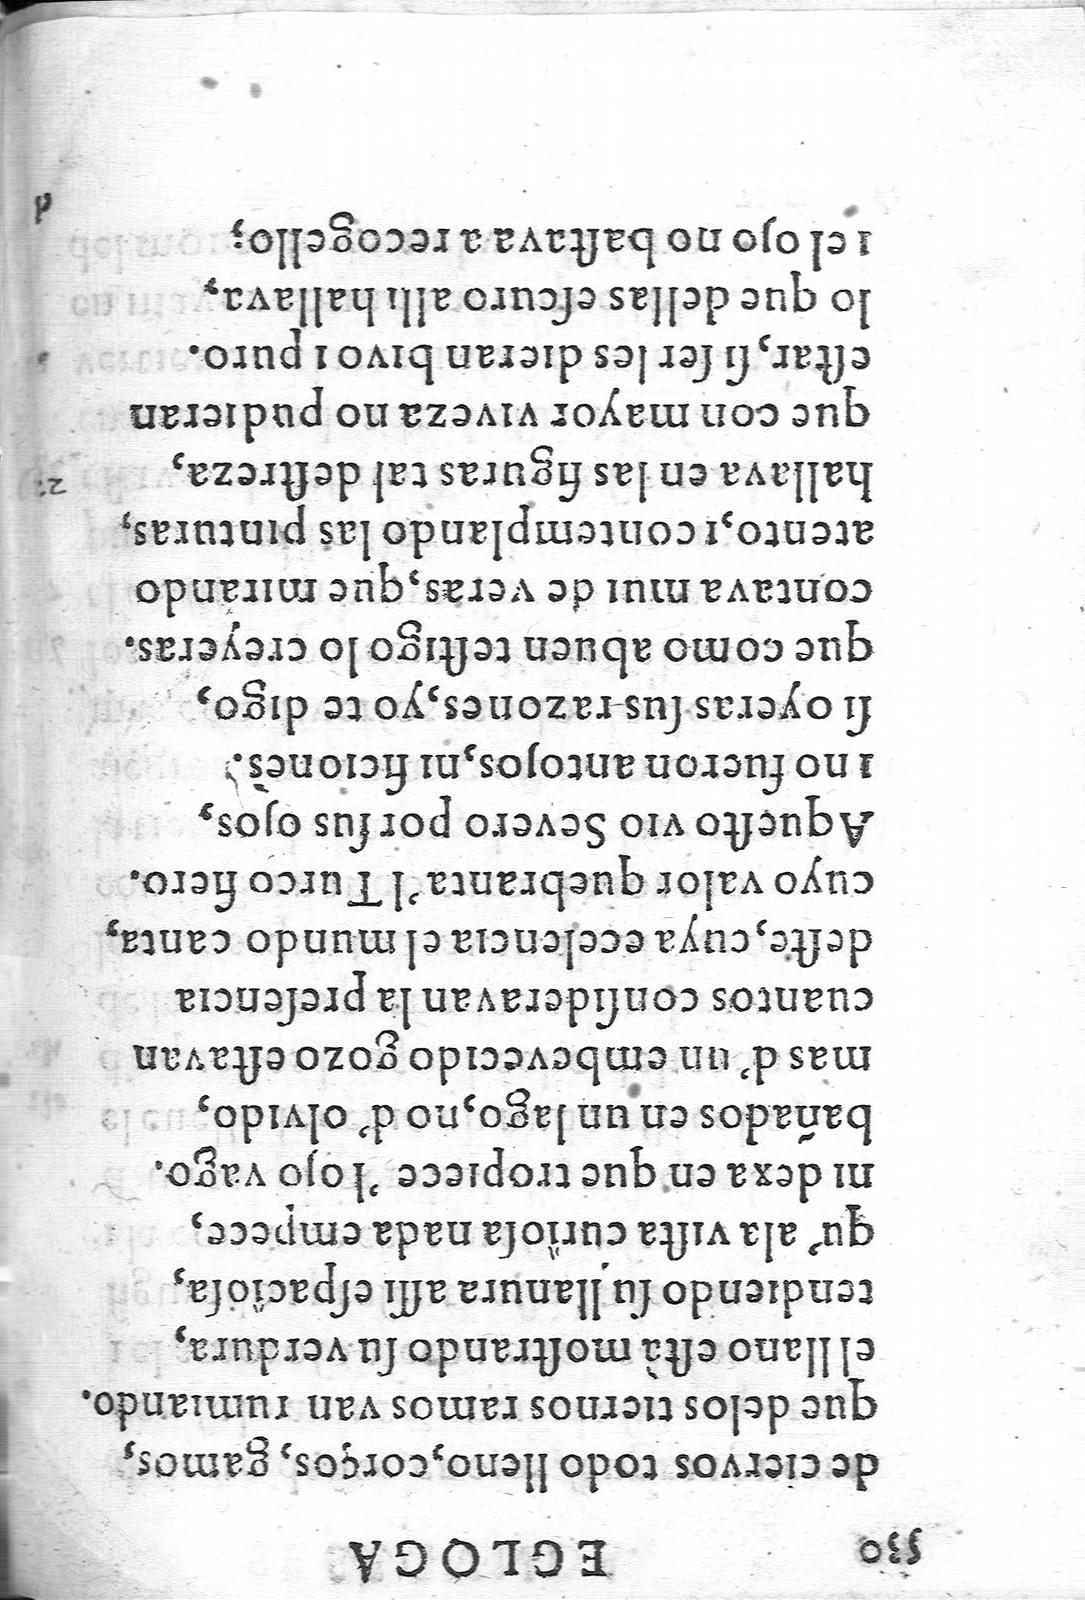 530
EGLOGA
de ciervos todo lleno, corços, gamos,
que delos tiernos ramos van rumiando.
el llano eſtà moſtrando ſu verdura,
tendiendo ſu llanura aſſi eſpacïoſa,
qu' ala viſta curïoſa nada empece,
ni dexa en que tropiece 'l ojo vago.
bañados en un lago, no d' olvido,
mas d' un embevecido gozo eſtavan
cuantos conſideravan la preſencia
deſte, cuya ecelencia el mundo canta,
cuyo valor quebranta 'l Turco fiero.
Aqueſto vio Severo por ſus ojos,
i no fueron antojos, ni ficiones.
ſi oyeras ſus razones, yo te digo,
que como abuen teſtigo lo creyeras.
contava mui de veras, que mirando
atento, i contemplando las pinturas,
hallava en las figuras tal deſtreza,
que con mayor viveza no pudieran
eſtar, ſi ſer les dieran bivo i puro.
lo que dellas eſcuro alli hallava,
i el ojo no baſtava a recogello;